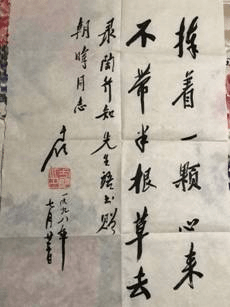 捧着一颗心来
不带半根草去
录陶行知先生语书赠
朝晖同志
一九九八年
七月廿一日